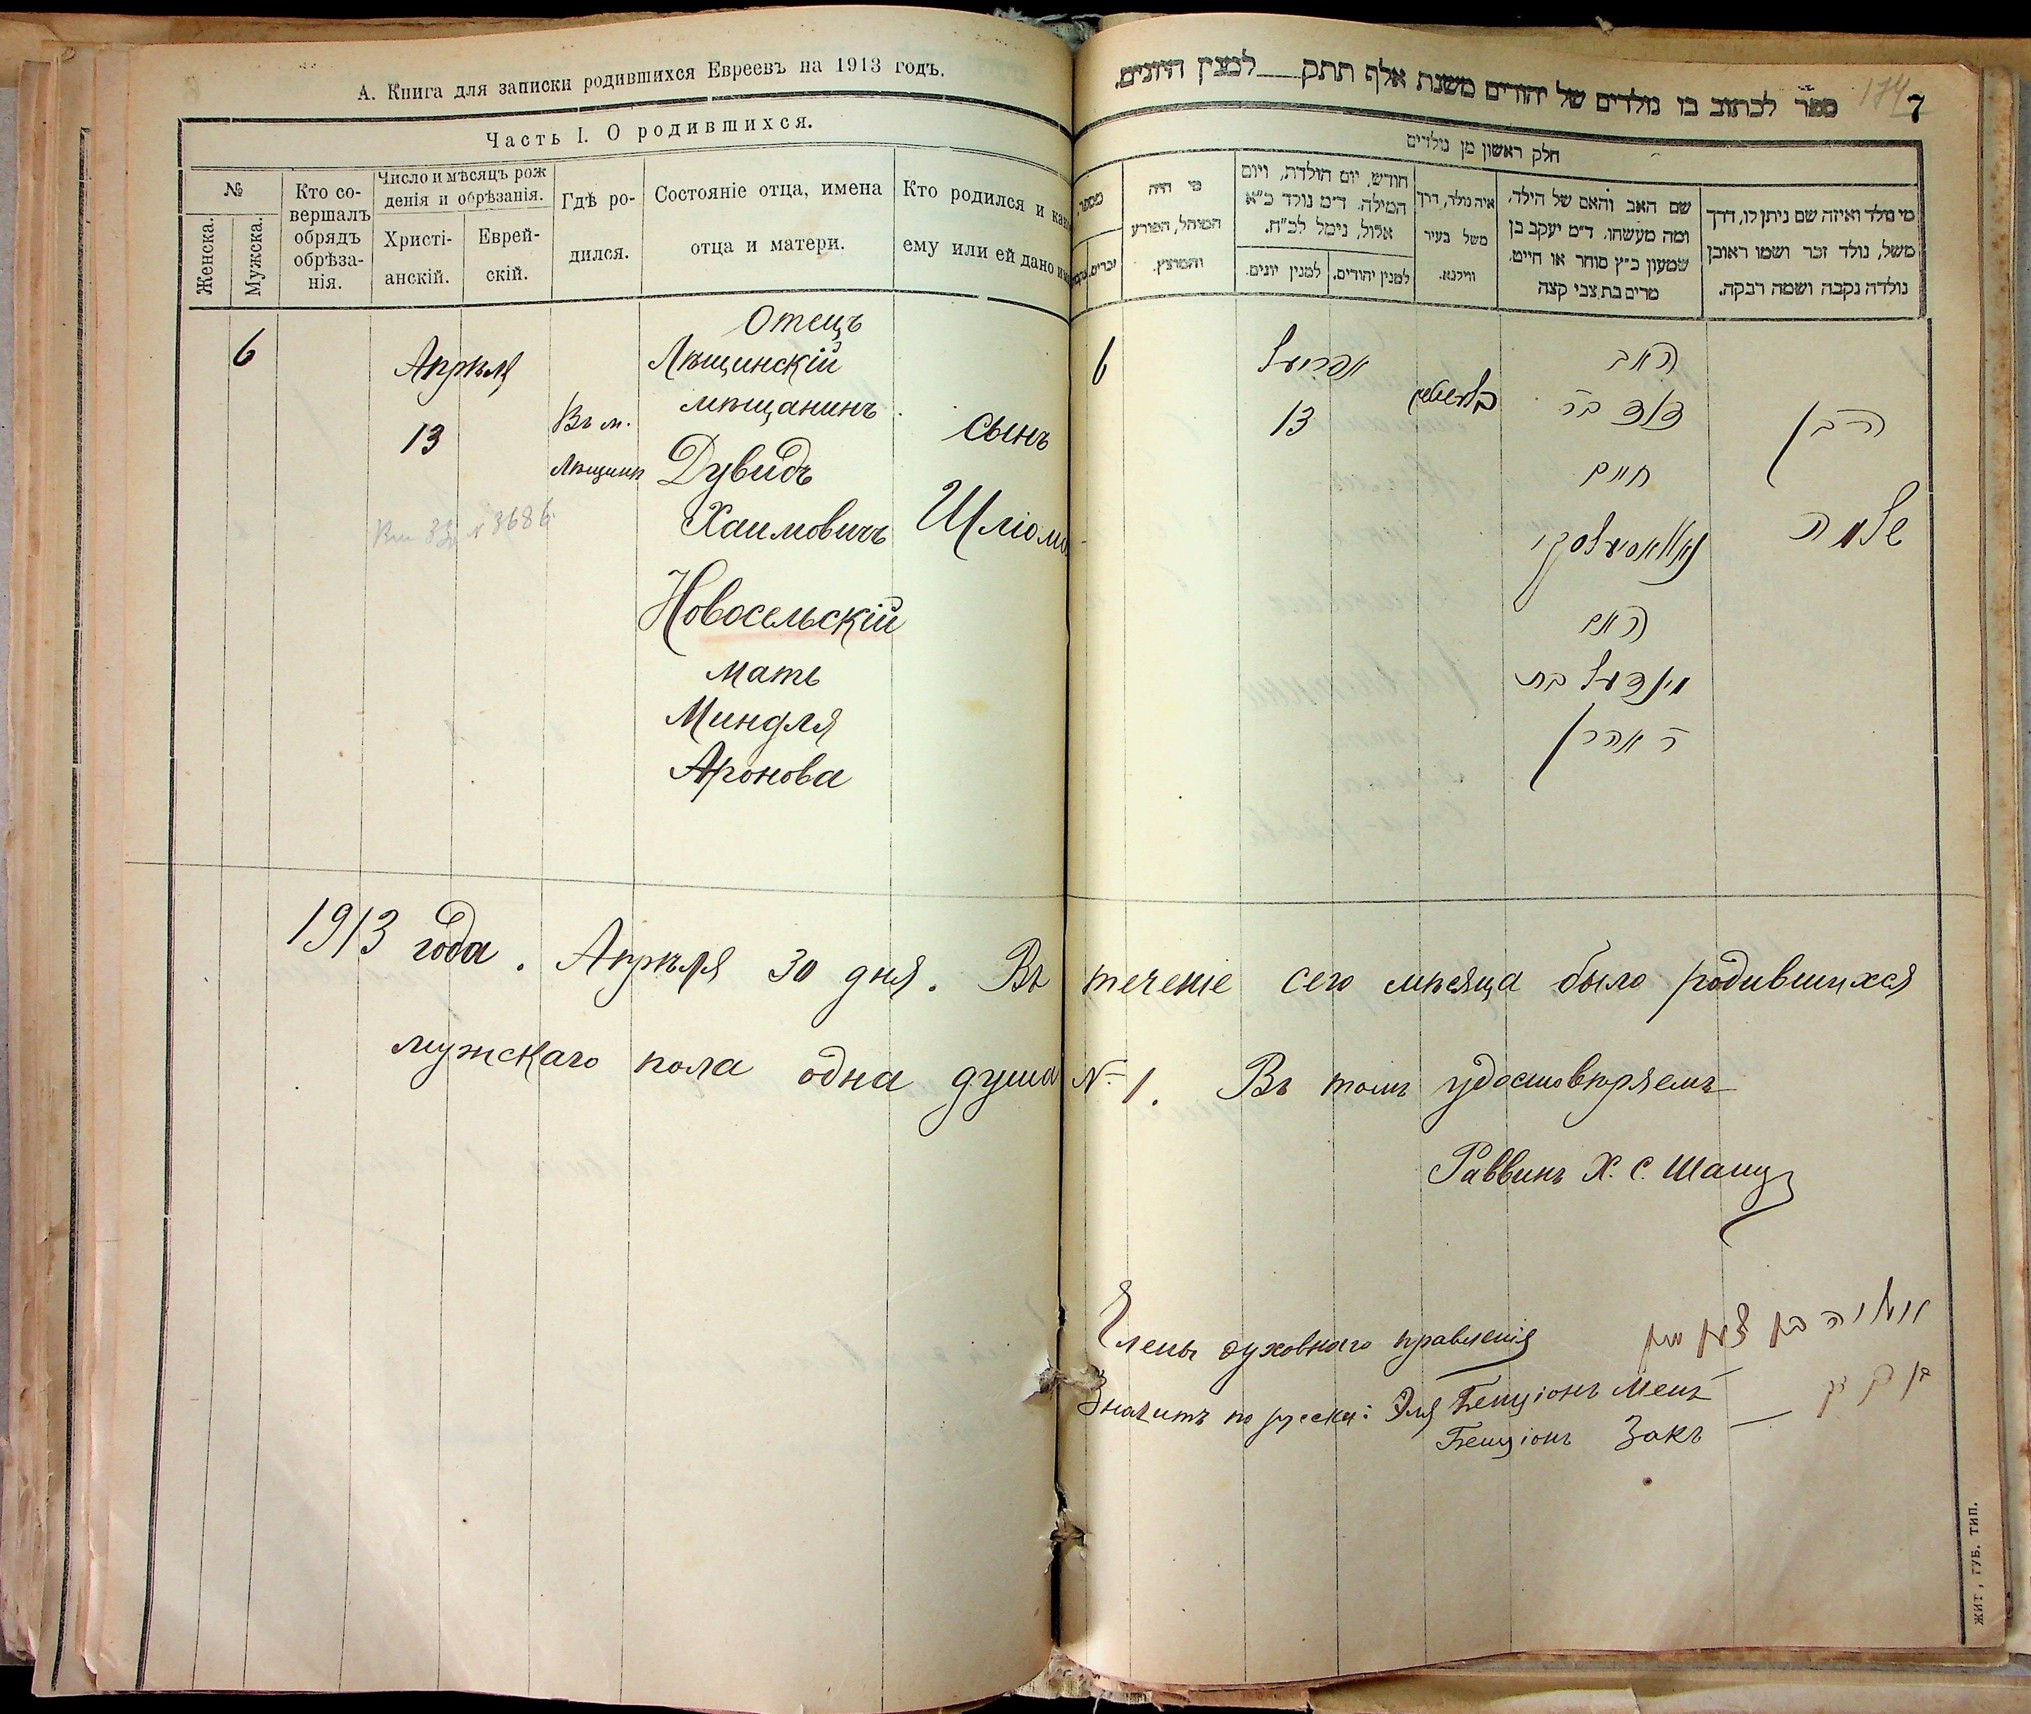 А. Книга для записки родившихся Евреевъ на 1913 годъ.
Часть I. О родившихся.
№
Женска.
Мужска.
Кто со-
вершалъ
обрядъ
обрѣза-
нія.
Число и мѣсяцъ рож
денія и обрѣзанія.
Христі-
анскій.
Еврей-
скій.
Гдѣ ро-
дился.
Состояніе отца, имена
отца и матери.
Кто родился и как
ему или ей дано
6
Апрѣля
13
Въ м.
Лѣщинѣ
Отецъ
Лѣщинскій
мѣщанинъ
Дувидъ
Хаимовичъ
Новосельскій
мать
Миндля
Аронова
сынъ
Шліома
№ 3686
ספר לכתוב בו נולדים של יהודים משנת אלף תתק למנין היונים.
174
7
חלק ראשון מן נולדים
מספר
זכרים.
מי היה
המוהל, הפורע
והמוצץ.
חודש, יום הולדת, ויום
המילה. ד״מ נולד כ״א
אלול, נימל לכ״ח.
למנין יהודים.
למנין יונים.
איה נולד, דרך
משל בעיר
ווילנא.
שם האב והאם של הילד,
ומה מעשהו. ד״מ יעקב בן
שמעון כ״ץ סוחר או חייט.
מרים בת צבי קצה
מי נולד ואיזה שם ניתן לו, דרך
משל, נולד זכר ושמו ראובן
נולדה נקבה ושמה רבקה.
6
אפריעל
13
האב
דוד בר
חיים
נאוואסיעלסקי
האם
מינדעל בת
ר אהרן
הבן
שלמה
1913 года. Апрѣля 30 дня. Въ теченіе сего мѣсяца было родившихся
мужскаго пола одна душа № 1. Въ томъ удостовѣряемъ
Раввинъ Х. С. Шацъ
Члены духовнаго правленія
Значитъ по русски: Эля Бенціонъ Менъ
Бенціонъ Закъ
ЖИТ, ГУБ. ТИП.